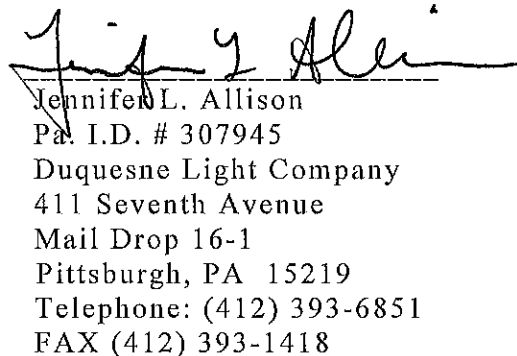 Jennifer L. Allison
Jennifer L. Allison
Pa. I.D. # 307945
Duquesne Light Company
411 Seventh Avenue
Mail Drop 16-1
Pittsburgh, PA 15219
Telephone: (412) 393-6851
FAX (412) 393-1418